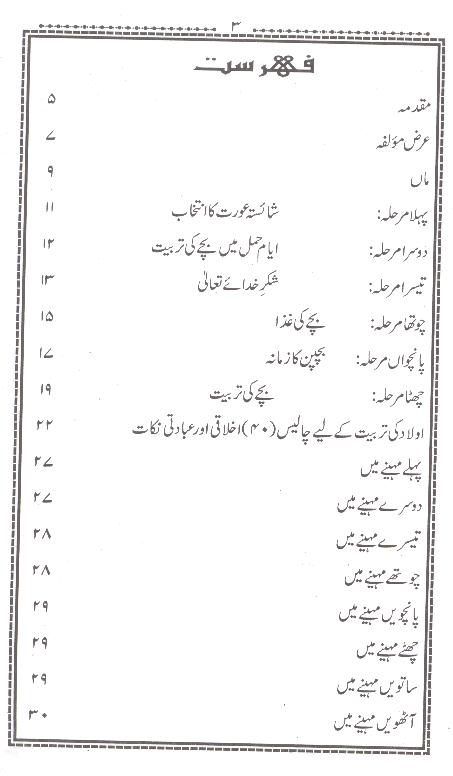 ۳
فہرست
مقدمہ ۵
عرض مؤلفہ ۷
ماں ۹
پہلا مرحلہ: شائستہ عورت کا انتخاب ۱۱
دوسرا مرحلہ: ایام حمل میں بچے کی تربیت ۱۲
تیسرا مرحلہ: شکرِ خدائے تعالیٰ ۱۳
چوتھا مرحلہ: بچے کی غذا ۱۵
پانچواں مرحلہ: بچپن کا زمانہ ۱۷
چھٹا مرحلہ: بچے کی تربیت ۱۹
اولاد کی تربیت کے لیے چالیس (۴۰) اخلاقی اور عبادتی نکات ۲۲
پہلے مہینے میں ۲۷
دوسرے مہینے میں ۲۷
تیسرے مہینے میں ۲۸
چوتھے مہینے میں ۲۸
پانچویں مہینے میں ۲۹
چھٹے مہینے میں ۲۹
ساتویں مہینے میں ۲۹
آٹھویں مہینے میں ۳۰